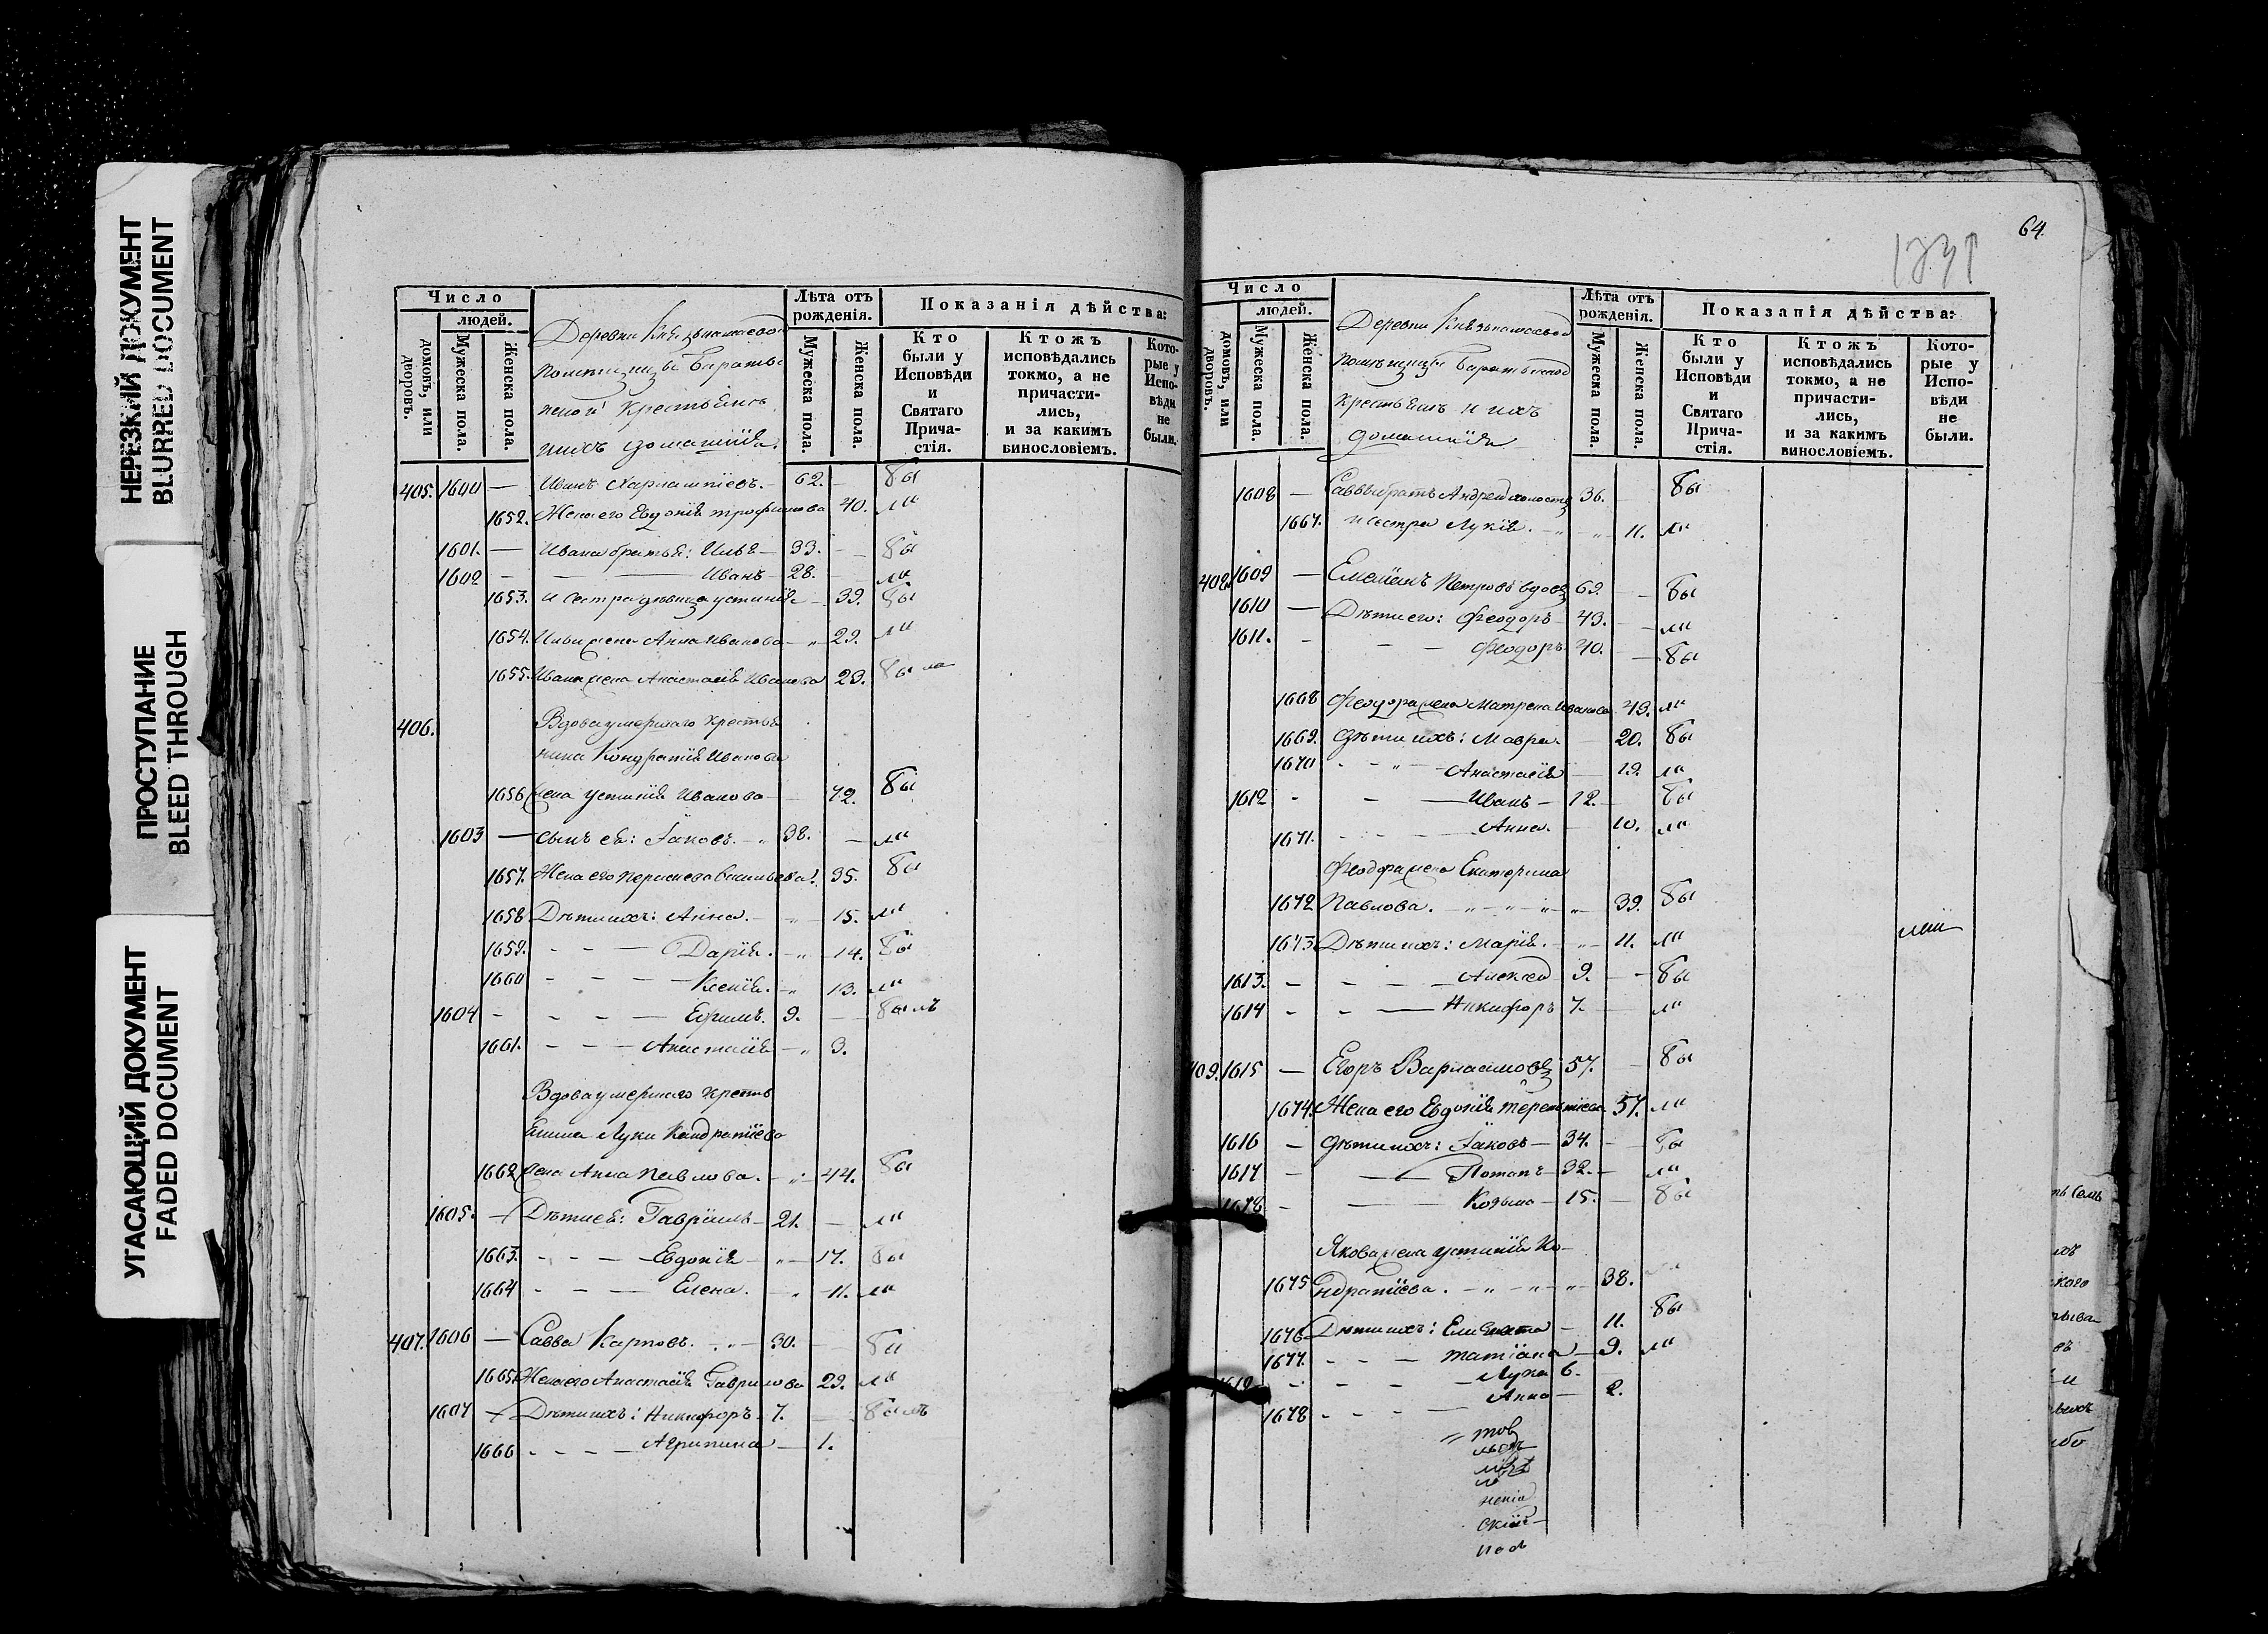 НЕРЕЗКИЙ ДОКУМЕНТ
BLURRED DOCUMENT
ПРОСТУПАНИЕ
BLEED THROUGH
УГАСАЮЩИЙ ДОКУМЕНТ
FADED DOCUMENT
Число
людей.
домовъ, или дворовъ.
Мужеска пола.
Женска пола.
Деревни
крестьянъ
ихъ домашнія
Лѣта отъ рожденія.
Мужеска пола.
Женска пола.
Показанія дѣйства:
Кто были у Исповѣди и Святаго Прича- стія.
Ктожъ исповѣдались токмо, а не причасти- лись, и за какимъ винословіемъ.
Кото- рые у Испо- вѣди не были.
405. 1600 — Иванъ 62. — бы
1652. Жена его Евдокія Трофимова 40. ли
1601. — Ивана братья: Илья — 33. — бы
1602 — — Иванъ — 28. ли
1653. и сестра девица Устинія — 39. бы
1654. Ильи жена Анна Иванова — 29. ли
1655. Ивана жена Анастасія Иванова 23. была
406. Вдова умершаго крестья
нина Кондратія Иванова
1656 жена Устинія Иванова — 72. бы
1603 — сынъ ея: Іаковъ. 38. — ли
1657. Жена его Васильева 35. бы
1658 Дѣти ихъ: Анна. — 15. ли
1659. — Дарія. — 14. бы
1660 — Ксенія. — 13. ли
1604 — Ефимъ. 9. — былъ
1661. — Анастасія — 3.
Вдова умершаго кресть
янина Луки Кандратіева
1662 жена Анна Павлова. — 44. бы
1605. — Дѣти ея: Гавріилъ — 21. — ли
1663. — Евдокія — 17. бы
1664 — Елена. — 11. ли
407. 1606 — Савва Карповъ. — 30. бы
1665. Жена его Анастасія Гаврилова 29. ли
1607 — Дѣти ихъ: Никифоръ 7. — былъ
1666 — Агрипина — 1.
64.
Число
людей.
домовъ, или дворовъ.
Мужеска пола.
Женска пола.
Деревни
крестьянъ и ихъ
домашнія
Лѣта отъ рожденія.
Мужеска пола.
Женска пола.
Показанія дѣйства:
Кто были у Исповѣди и Святаго Прича- стія.
Ктожъ исповѣдались токмо, а не причасти- лись, и за какимъ винословіемъ.
Кото- рые у Испо- вѣди не были.
1608 — Саввы братъ Андрей холостъ 36. — бы
1667. и сестра Лукія. — 11. ли
408 1609 — Емеліанъ Петровъ вдовъ 69. — бы
1610 — Дѣти его: Феодоръ — 43. — ли
1611. — Феодоръ 40. — бы
1668 Феодора жена Матрена Иванова 49. ли
1669. Дѣти ихъ: Мавра. — 20. бы
1670 — Анастасія — 19. ли
1612 — Иванъ — 12. бы
1671. — Анна. 10. ли
Феодора жена Екатерина
1672 Павлова. — 39. бы
1673 Дѣти ихъ: Марія. — 11. ли
1613. — Алексей 9. — бы
1614 — Никифоръ 7. — ли
409. 1615 — Егоръ Варлаамовъ 57. — бы
1674. Жена его Евдокія Терентіева 57. ли
1616 — Дѣти ихъ: Іаковъ — 34. — бы
1617 — Потапъ — 32. — ли
1618 — Козьма — 15. — бы
Якова жена Устинія Ко-
1675 ндратіева. — 38.
1676 Дѣти ихъ: Елисавета — 11. бы
1677. — Татіана — 9. ли
1619 — Лука 6.
1678 — Анна — 2.